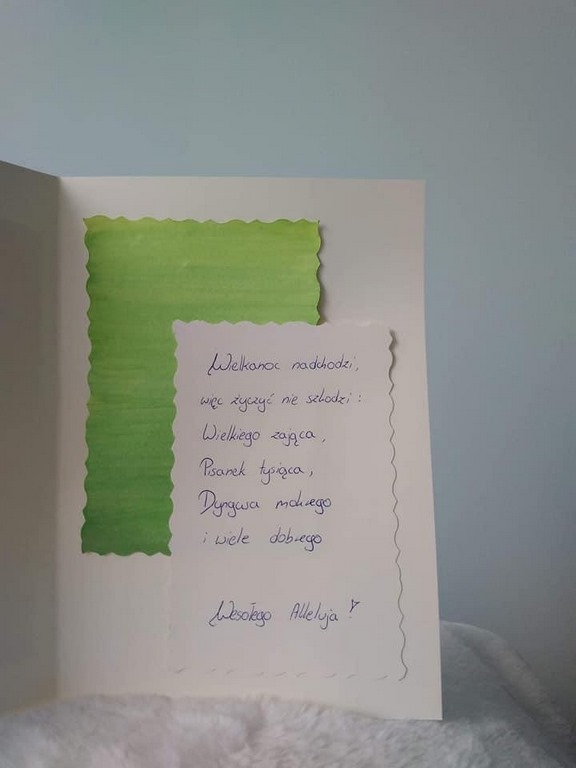 Wielkanoc nadchodzi,
więc życzyć nie szkodzi:
Wielkiego zająca,
Pisanek tysiąca,
Dyngusa mokrego
i wiele dobrego
Wesołego Alleluja!